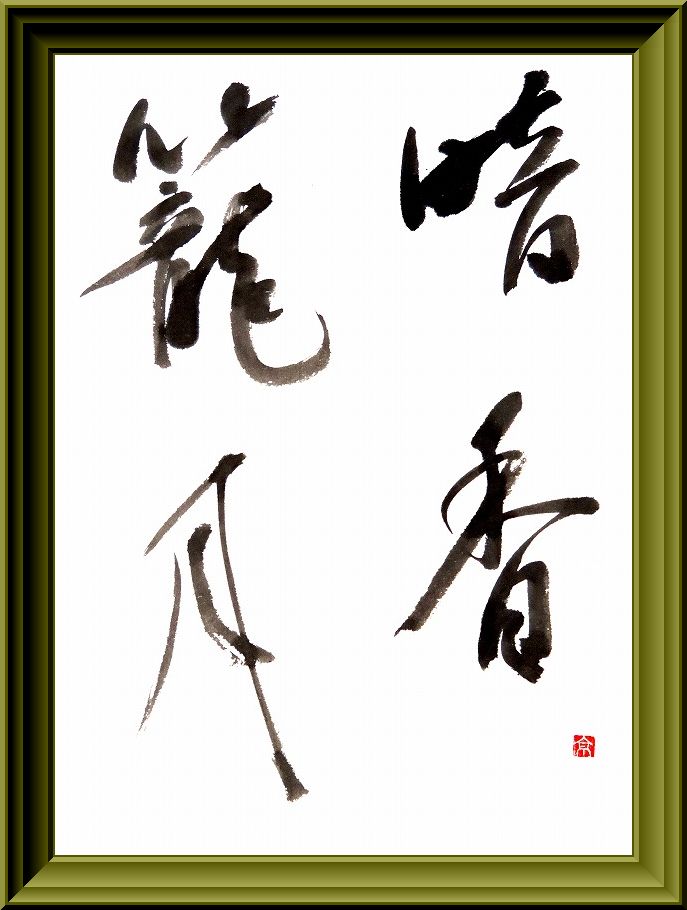 暗香
籠月